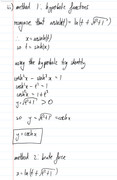 (i) method 1: hyperbolic functions
recognise that arsinh(t) = ln(t + √(t²+1))
∴ x = arsinh(t)
so t = sinh(x)
using the hyperbolic trig identity
cosh²x - sinh²x = 1
cosh²x - t² = 1
cosh²x = 1 + t²
y = √(t²+1) > 0
so y = √(t²+1) = cosh x
y = cosh x
method 2: brute force
x = ln(t + √(t²+1))